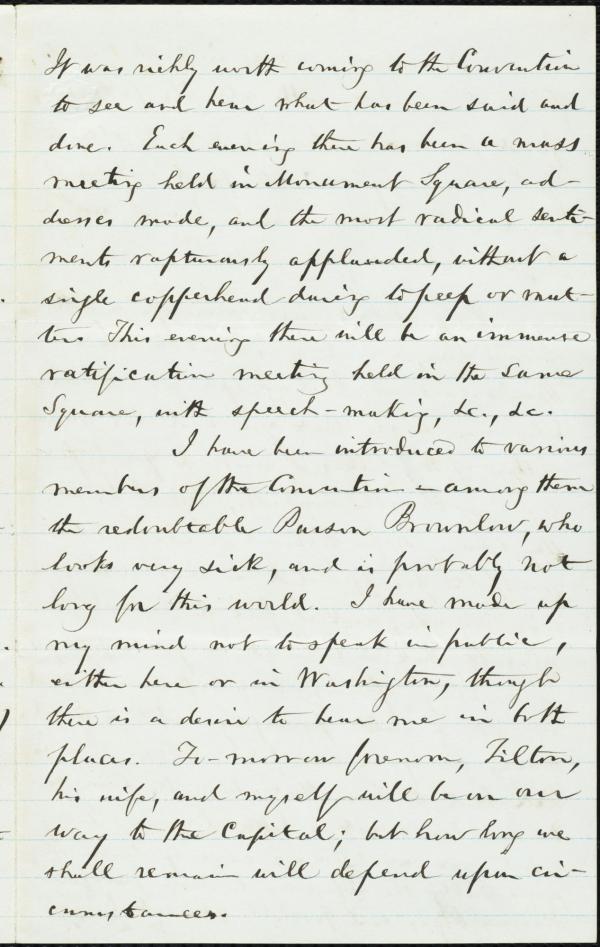 It was richly worth coming to the Convention
to see and hear what has been said and
done. Each evening there has been a mass
meeting held in Monument Square, ad-
dresses made, and the most radical senti-
ments rapturously applauded, without a
single copperhead daring to peep or mut-
ter. This evening there will be an immense
ratification meeting held in the same
Square, with speech-making, &c., &c.
I have been introduced to various
members of the Convention — among them
the redoubtable Parson Brownlow, who
looks very sick, and is probably not
long for this world. I have made up
my mind not to speak in public,
either here or in Washington, though
there is a desire to hear me in both
places. To-morrow forenoon, Tilton,
his wife, and myself will be on our
way to the Capital; but how long we
shall remain will depend upon cir-
cumstances.